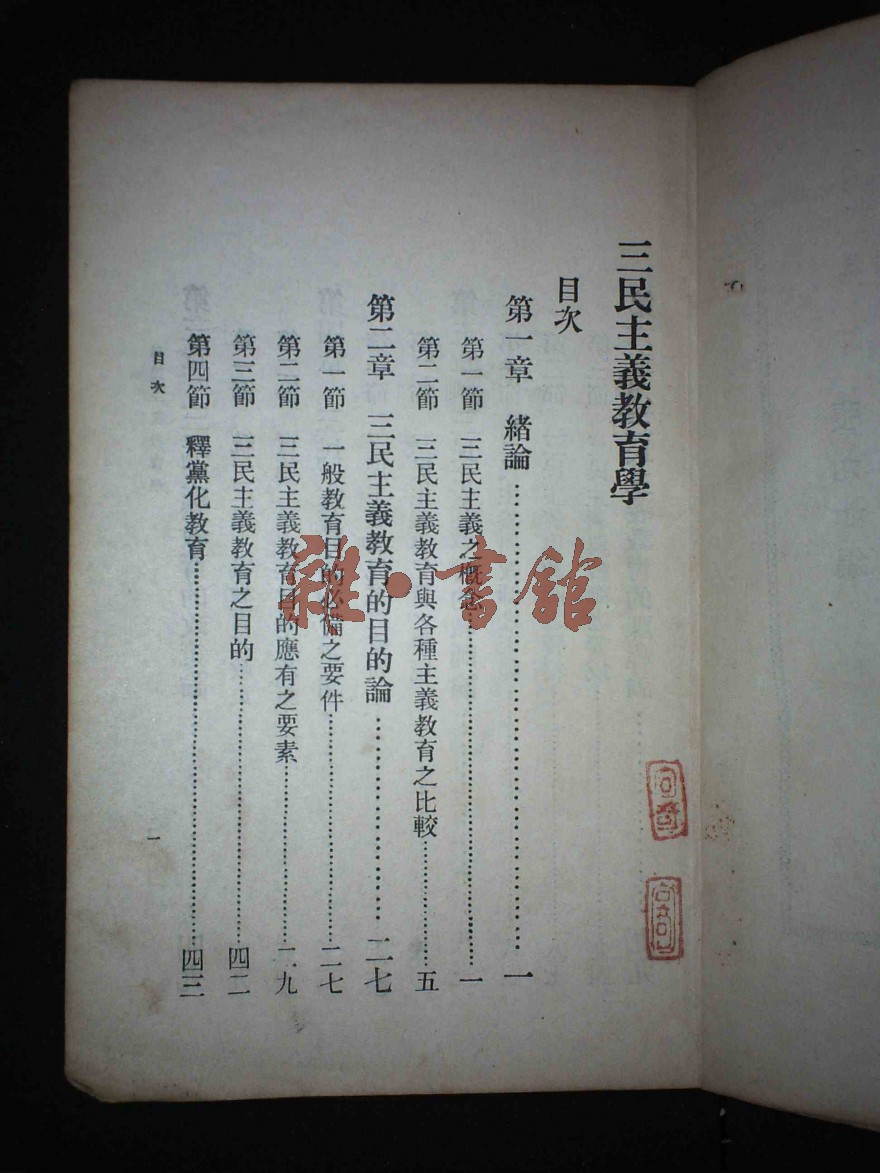 三民主義教育學
目次
第一章 緒論……一
第一節 三民主義之概念……一
第二節 三民主義教育與各種主義教育之比較……五
第二章 三民主義教育的目的論……二七
第一節 一般教育目的必備之要件……二七
第二節 三民主義教育目的應有之要素……二九
第三節 三民主義教育之目的……四二
第四節 釋黨化教育……四三
目次
一
雜·書館